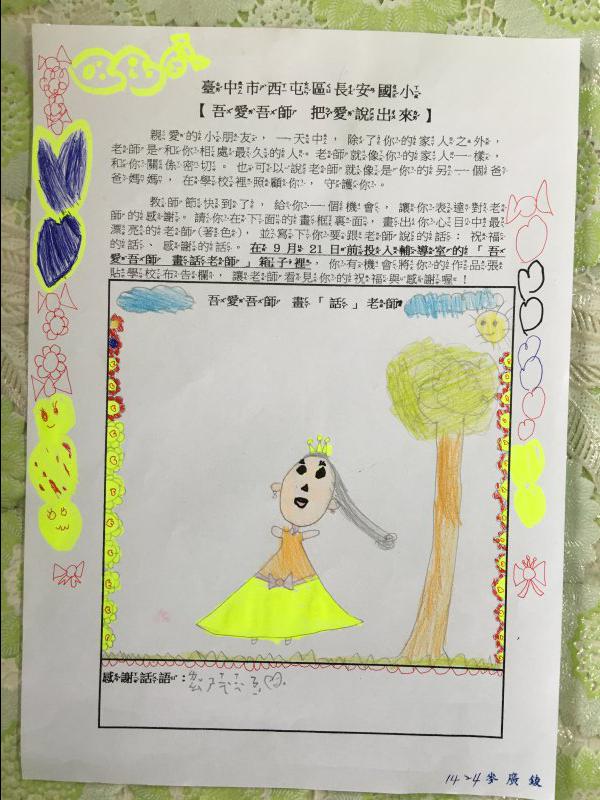 臺中市西屯區長安國小
【吾愛吾師 把愛說出來】
親愛的小朋友,一天中,除了你的家人之外,
老師是和你相處最久的人。老師就像你的家人一樣,
和你關係密切。也可以說老師就是你的另一個爸
爸媽媽,在學校裡照顧你,守護你。
教師節快到了,給你一個機會,讓你表達對老
師的感謝。請你在下面的畫框裏面,畫出你心目中最
漂亮的老師(著色),並寫下你要跟老師說的話:祝福
的話、感謝的話。在9月21日前投入輔導室的「吾
愛吾師 畫話老師」箱子裡,你有機會將你的作品張
貼學校布告欄,讓老師看見你的祝福與感謝喔!
吾愛吾師 畫「話」老師
感謝話語:
1424 麥廣銨